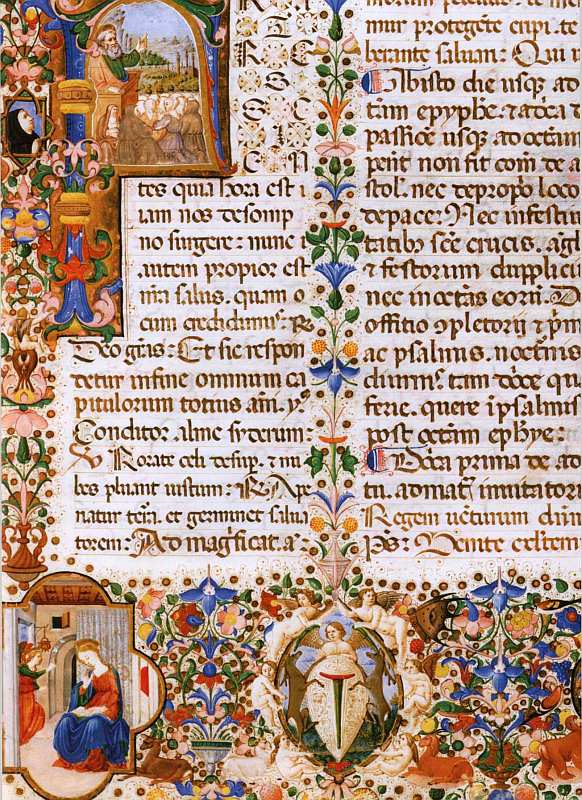 tes quia hora est i
iam nos de somp
no surgere: nunc i
autem propior est
nr̄a salus. quam
cum credidimus. R
Deo gr̄as: Et sic respon
detur in fine omnium ca
pitulorum totius an̄i. ẏ
Conditor alme syderum
V Rorate celi desup̄. et nu
bes pluant iustum: R Ape
riatur terr̄a. et germinet salua
torem: Ad mag̅ficat. a
mur protegēte eripi. te
berante saluari: Qui
Ab isto die usq̄ ad
tām epyph̄e: et ab octa
passiōe usq̄ ad octam
pent̄ non fit com̄ de a
stol̄. nec de propo loco
de pace: Nec infesti
tatib3 sc̄e crucis. ang
et festorum dupplici
nec in octas eorū. D
offitio ↄpletorij et pm
ac psalmis. nocturnis
diurnis. tam dōce qu
ferie. quere i psalmis
post octam ephye:
Dōca prima de ad
tu. ad mat̄ inuitator
Regem uēturum dn̄m
ps: Venite exl̄tem